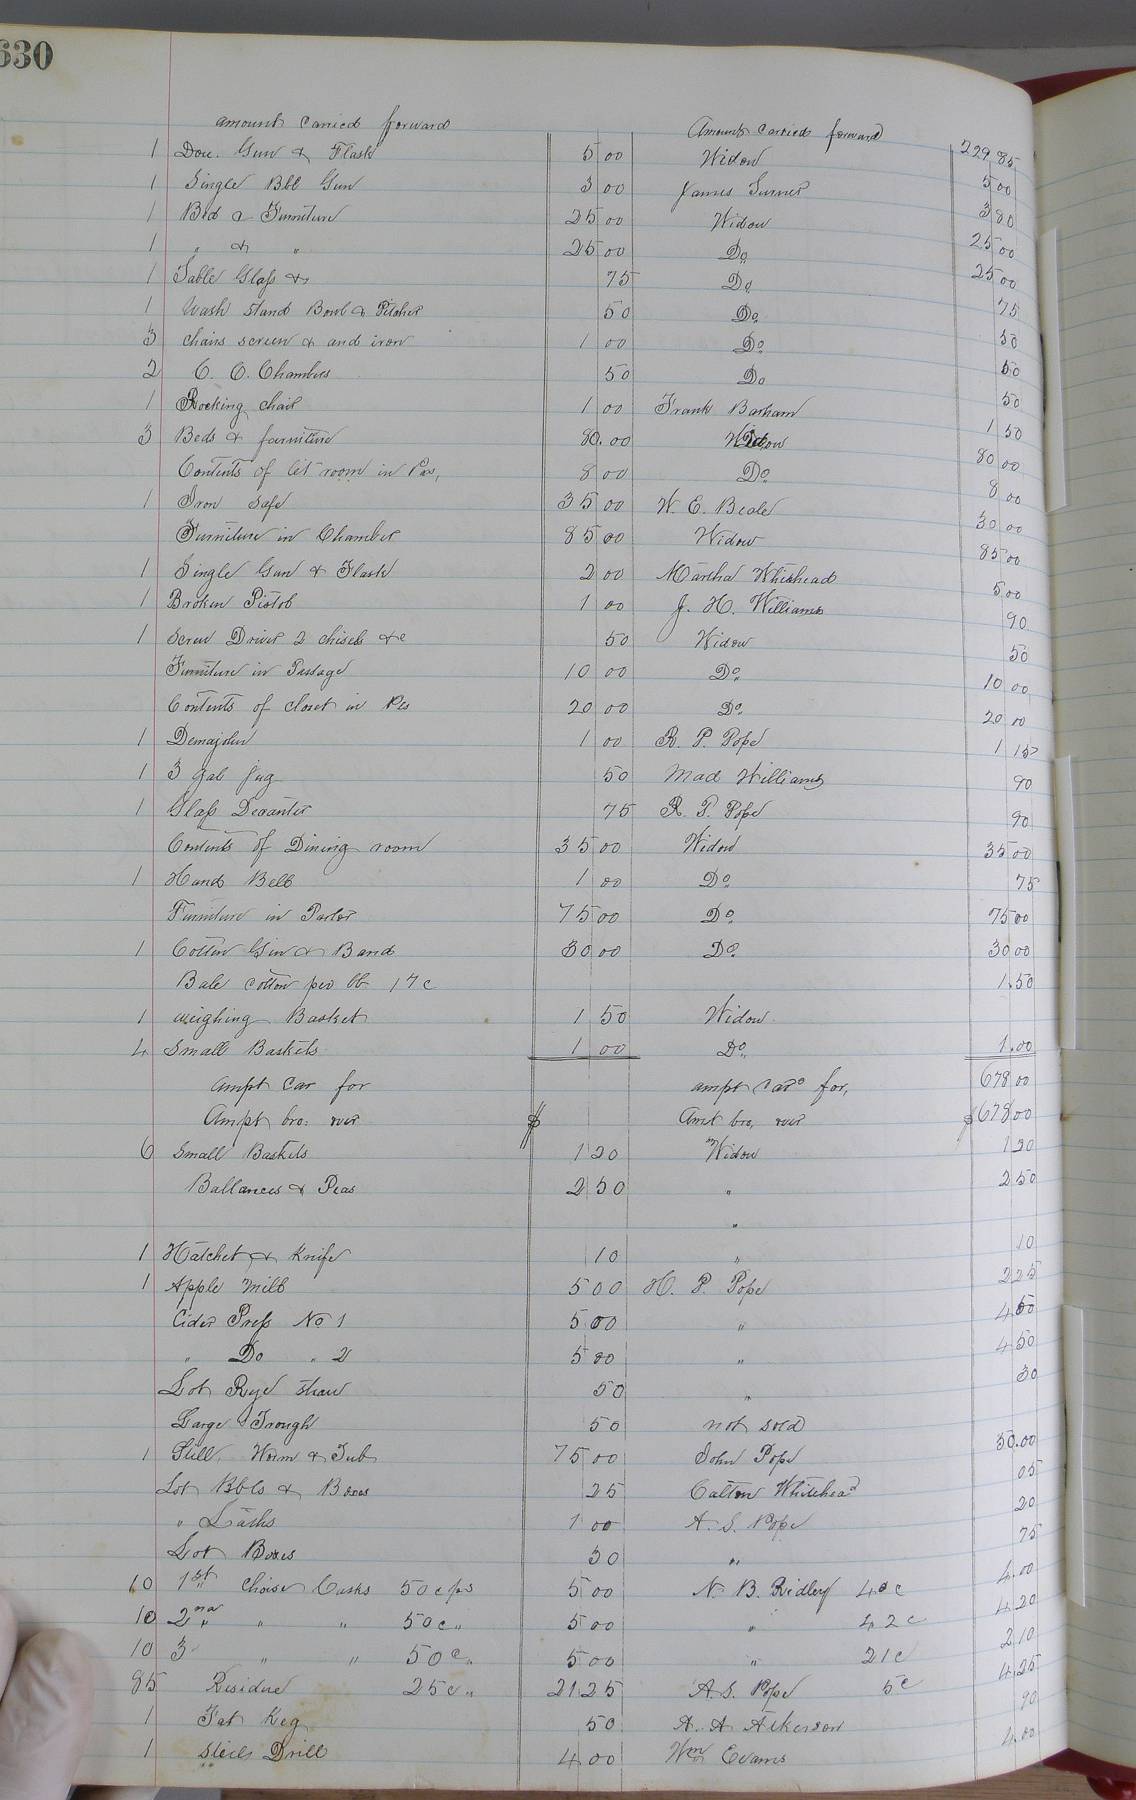 630
amount carried forward Amount carried forward 229 85
1 Dou. Gun & Flask 5 00 Widow 5 00
1 Single Bbl Gun 3 00 James Turner 3 80
1 Bed & Furniture 25 00 Widow 25 00
1 " & " 25 00 Do 25 00
1 Table Glass & 75 Do 75
1 Wash stand Bowl & Pitcher 50 Do 50
3 chairs screen & and iron 1 00 Do 50
2 C. C. Chambers 50 Do 50
1 Rocking chair 1 00 Frank Barham 1 50
3 Beds & furniture 80.00 Widow 80 00
Contents of room in Pas, 8 00 Do 8 00
1 Iron Safe 35 00 W. E. Beale 30 00
Furniture in Chamber 85 00 Widow 85 00
1 Single Gun & Flask 2 00 Martha Whitehead 5 00
1 Broken Pistol 1 00 J. H. Williams 90
1 Screw Driver 2 chisels &c 50 Widow 50
Furniture in Passage 10 00 Do 10 00
Contents of closet in Ps 20 00 Do 20 00
1 Demajohn 1 00 R. P. Pope 1 15
1 3 gal Jug 50 Mad Williams 90
1 Glass Decanter 75 R. P. Pope 90
Contents of Dining room 35 00 Widow 35 00
1 Hand Bell 1 00 Do 75
Furniture in Parlor 75 00 Do 75 00
1 Cotton Gin & Band 30 00 Do 30 00
Bale cotton per lb 17c 1.50
1 weighing Basket 1 50 Widow
4 Small Baskets 1 00 Do 1.00
Ampt Car for ampt Card for, 678 00
Ampt bro: over $ Amt bro, over $678 00
6 Small Baskets 1 20 Widow 1 20
Ballances & Peas 2 50 " 2 50
"
1 Hatchet & Knife 10 " 10
1 Apple Mill 5 00 H. P. Pope 2 25
Cider Press No 1 5 00 " 4 50
" Do " 2 5 00 " 4 50
Lot Rye Straw 50 " 30
Large Trough 50 not sold
1 Still, Worm & Tub 75 00 John Pope 50.00
Lot Bbls & Boxes 25 Calton Whitehead 05
" 1 00 A. S. Pope 20
Lot Boxes 50 " 75
10 1st " Choise Casks 50c ps 5 00 N. B. Ridley 40c 4.00
10 2nd " " " 50c " 5 00 " 42c 4 20
10 3 " " 50c " 5 00 " 21c 2 10
85 Residue 25c " 21 25 A. S. Pope 5c 4 25
1 Fat Keg 50 A. A. Atkerson 90
1 Drill 4 00 Wm Evans 4.00